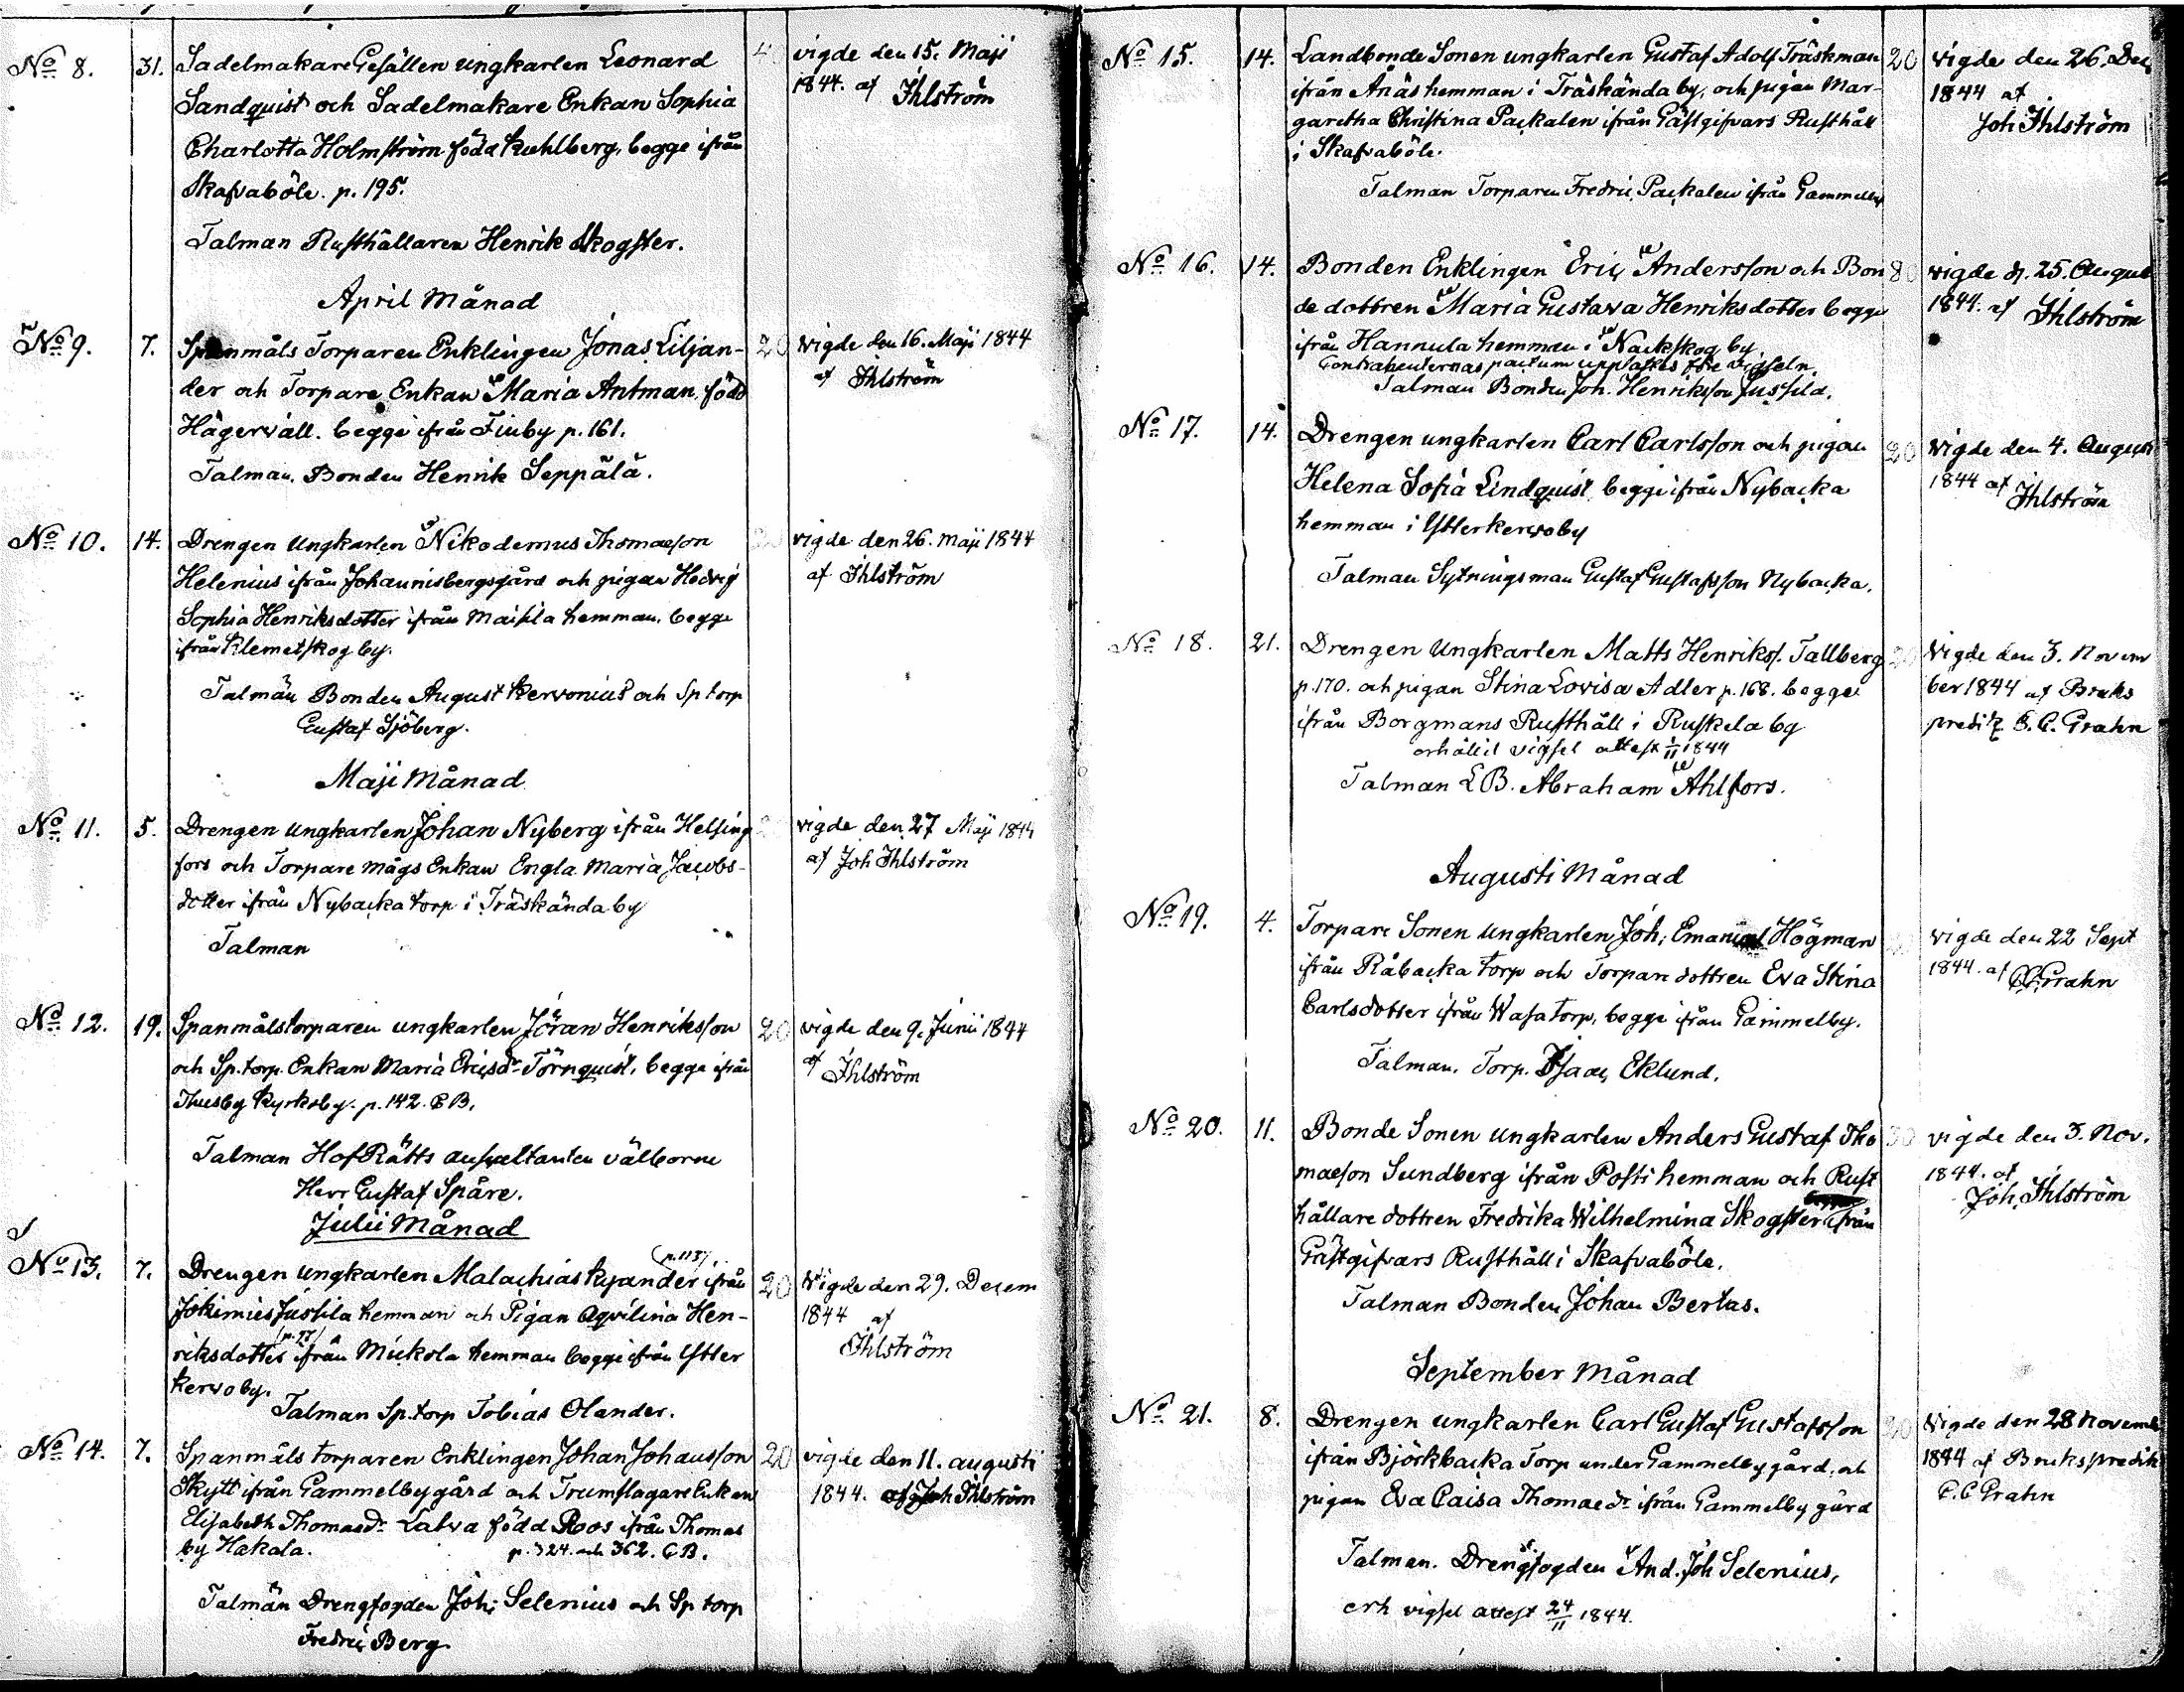 No 8. 31. Sadelmakare Gesällen ungkarlen Leonard 40 vigde den 15. Maji
Sandquist och Sadelmakare Enkan Sophia 1844. af Ihlström
Charlotta Holmström född Kuhlberg, begge ifrån
Skafvaböle. p. 195.
Talman Rusthållaren Henrik Skogster.
April Månad
No 9. 7. Spanmåls Torparen Enklingen Jonas Liljan- 20 vigde den 16. Maji 1844
der och Torpare Enkan Maria Antman, född af Ihlström
Hägervall. begge ifrån Finby p. 161.
Talman. Bonden Henrik Seppälä.
No 10. 14. Drengen Ungkarlen Nikodemus Thomasson 20 vigde den 26. Maji 1844
Helenius ifrån Johannisbergsgård och pigan Hedvig af Ihlström
Sophia Henriksdotter ifrån Maisila hemman, begge
ifrån Klemetskog by.
Talmän Bonden August Kervonius och Sp torp
Gustaf Sjöberg.
Maji Månad
No 11. 5. Drengen ungkarlen Johan Nyberg ifrån Helsing vigde den 27 Maji 1844
fors och Torpare mågs Enkan Engla Maria Jacobs- af Joh Ihlström
dotter ifrån Nybacka torp i Träskända by
Talman
No 12. 19. Spanmålstorparen ungkarlen Jöran Henriksson 20 vigde den 9. Junii 1844
och Sp. torp. Enkan Maria Ericsdr Törnquist, begge ifrån af Ihlström
Thusby Kyrkoby. p. 142. C B.
Talman HofRätts auscultanten välborne
Herr Gustaf Spåre.
Julii Månad
No 13. 7. Drengen ungkarlen Malachias Kyander (p. 113) ifrån 20 Vigde den 29. Decem
Jokimies Jussila hemman och Pigan Aqvilina Hen- 1844 af
riksdotter (p. 77) ifrån Mickola hemman begge ifrån Ytter Ihlström
kervo by.
Talman Sp. torp Tobias Olander.
No 14. 7. Spanmåls torparen Enklingen Johan Johansson 20 vigde den 11. augusti
Skytt ifrån Gammelby gård och Trumslagare Enkan 1844. af Joh Ihlström
Elisabeth Thomasdr Lalva född Roos ifrån Thomas
by Hakala. p. 324. och 362. C B.
Talmän Drengfogden Joh: Selenius och Sp torp
Fredric Berg
No 15. 14. Landbonde Sonen ungkarlen Gustaf Adolf Träskman 20 vigde den 26. Dec
ifrån Anäs hemman i Träskända by, och pigan Mar- 1844 af
garetha Christina Packalen ifrån Gästgifvars Rusthåll Joh Ihlström
i Skafvaböle.
Talman Torparen Fredric Packalen ifrån Gammelby
No 16. 14. Bonden Enklingen Eric Andersson och Bon 80 vigde d. 25. August
de dottren Maria Gustava Henriksdotter begge 1844. af Ihlström
ifrån Hannula hemman i Nackskog by.
Contrahenternas pactum upptaktes före vigseln.
Talman Bonden Joh. Henriksson Jussila.
No 17. 14. Drengen ungkarlen Carl Carlsson och pigan 20 Vigde den 4. August
Helena Sofia Lindquist, begge ifrån Nybacka 1844 af Ihlström
hemman i Ytterkervoby
Talman Sytningsman Gustaf Gustafsson Nybacka.
No 18. 21. Drengen Ungkarlen Matts Henrikss. Tallberg 20 Vigde den 3. Novem
p. 170. och pigan Stina Lovisa Adler p. 168. begge ber 1844 af Bruks
ifrån Borgmans Rusthåll i Ruskela by predik. C. C. Grahn
erhållit vigsel attest 1/11 1844
Talman L B. Abraham Ahlfors.
Augusti Månad
No 19. 4. Torpare Sonen ungkarlen Joh: Emanuel Högman vigde den 22 Sept
ifrån Råbacka torp och Torpare dottren Eva Stina 1844. af C C Grahn
Carlsdotter ifrån Wasa torp, begge ifrån Gammelby.
Talman. Torp. Isaac Eklund.
No 20. 11. Bonde Sonen ungkarlen Anders Gustaf Tho 30 vigde den 3. Nov.
maeson Sundberg ifrån Posti hemman och Rust 1844. af
hållare dottren Fredrika Wilhelmina Skogster ifrån Joh. Ihlström
Gästgifvars Rusthåll i Skafvaböle.
Talman Bonden Johan Bertas.
September Månad
No 21. 8. Drengen ungkarlen Carl Gustaf Gustafsson 20 Vigde den 28 Novemb
ifrån Björkbacka Torp under Gammelby gård, och 1844 af Brukspredik
pigan Eva Caisa Thomaedr ifrån Gammelby gård C. C Grahn
Talman. Drengfogden And. Joh Selenius,
erh vigsel attest 24/11 1844.